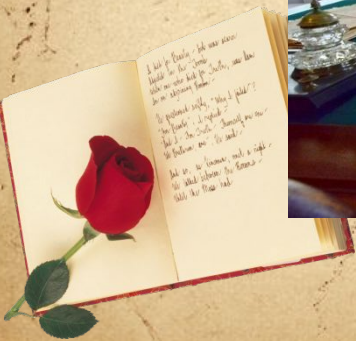 I died for Beauty - but was scarce
Adjusted in the Tomb
When one who died for Truth, was lain
In an adjoining Room -
He questioned softly, "Why I failed"?
"For Beauty", I replied -
"And I - for Truth - Themself are One -
We Brethren are", He said -
And so, as Kinsmen, met a Night -
We talked between the Rooms -
Until the Moss had